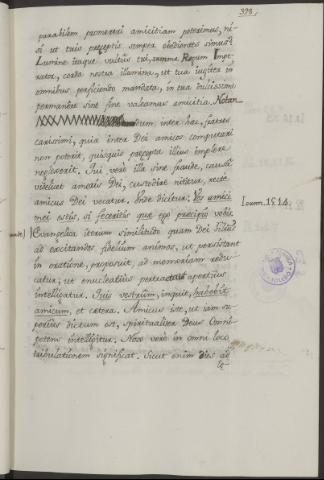 393.
parabilem promereri amicitiam poterimus, ni-
si ut tuis præceptis semper obedientes simus?
Lumine itaque vultus tui, summe Regum Impe-
rator, corda nostra illumina, ut tua jugiter in
omnibus perficiendo mandata, in tua dulcissima
permanere sine fine valeamus amicitia. Notan
dum, inter hæc, fratres
carissimi, quia inter Dei amicos computari
non poterit, quisquis præcepta illius implere
neglexerit. Qui verò illa sine fraude, causâ
videlicet amoris Dei, custodire nititur, rectè
amicus Dei vocatur. Unde dicitur: Vos amici
mei estis, si feceritis quæ ego præcipio vobis.
Joann. 15. 14.
Evangelica iterum similitudo quam Dei Filius
ad excitandos fidelium animos, ut persistant
in oratione, proposuit, ad memoriam redu-
catur, ut enucleatius pertractata apertius
intelligatur. Quis vestrûm, inquit, habebit
amicum, et cætera. Amicus iste, ut jam su-
perius dictum est, spiritualiter Deus Omni-
potens intelligitur. Nox verò in omni loco
tribulationem significat. Sicut enim dies ad